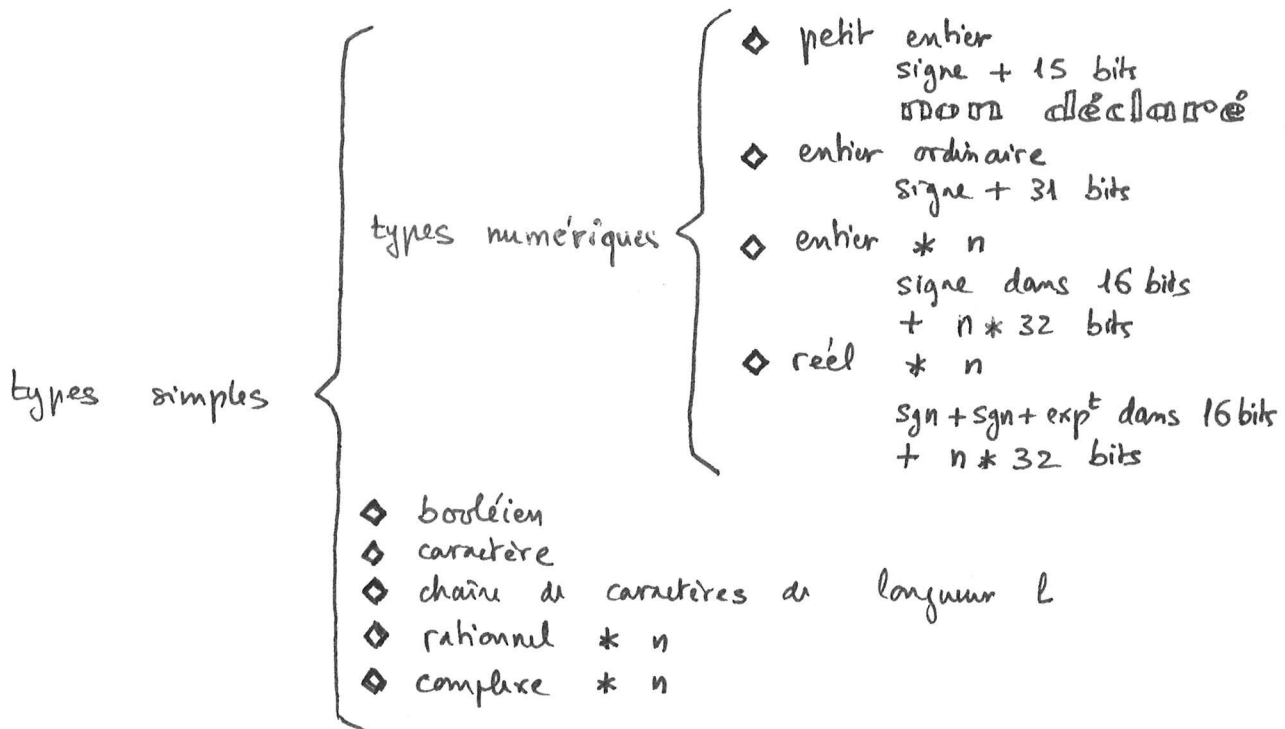 types simples
types numériques
◇ petit entier
signe + 15 bits
non déclaré
◇ entier ordinaire
signe + 31 bits
◇ entier * n
signe dans 16 bits
+ n * 32 bits
◇ réél * n
sgn + sgn + expᵗ dans 16 bits
+ n * 32 bits
◇ booléien
◇ caractère
◇ chaîne de caractères de longueur l
◇ rationnel * n
◇ complexe * n